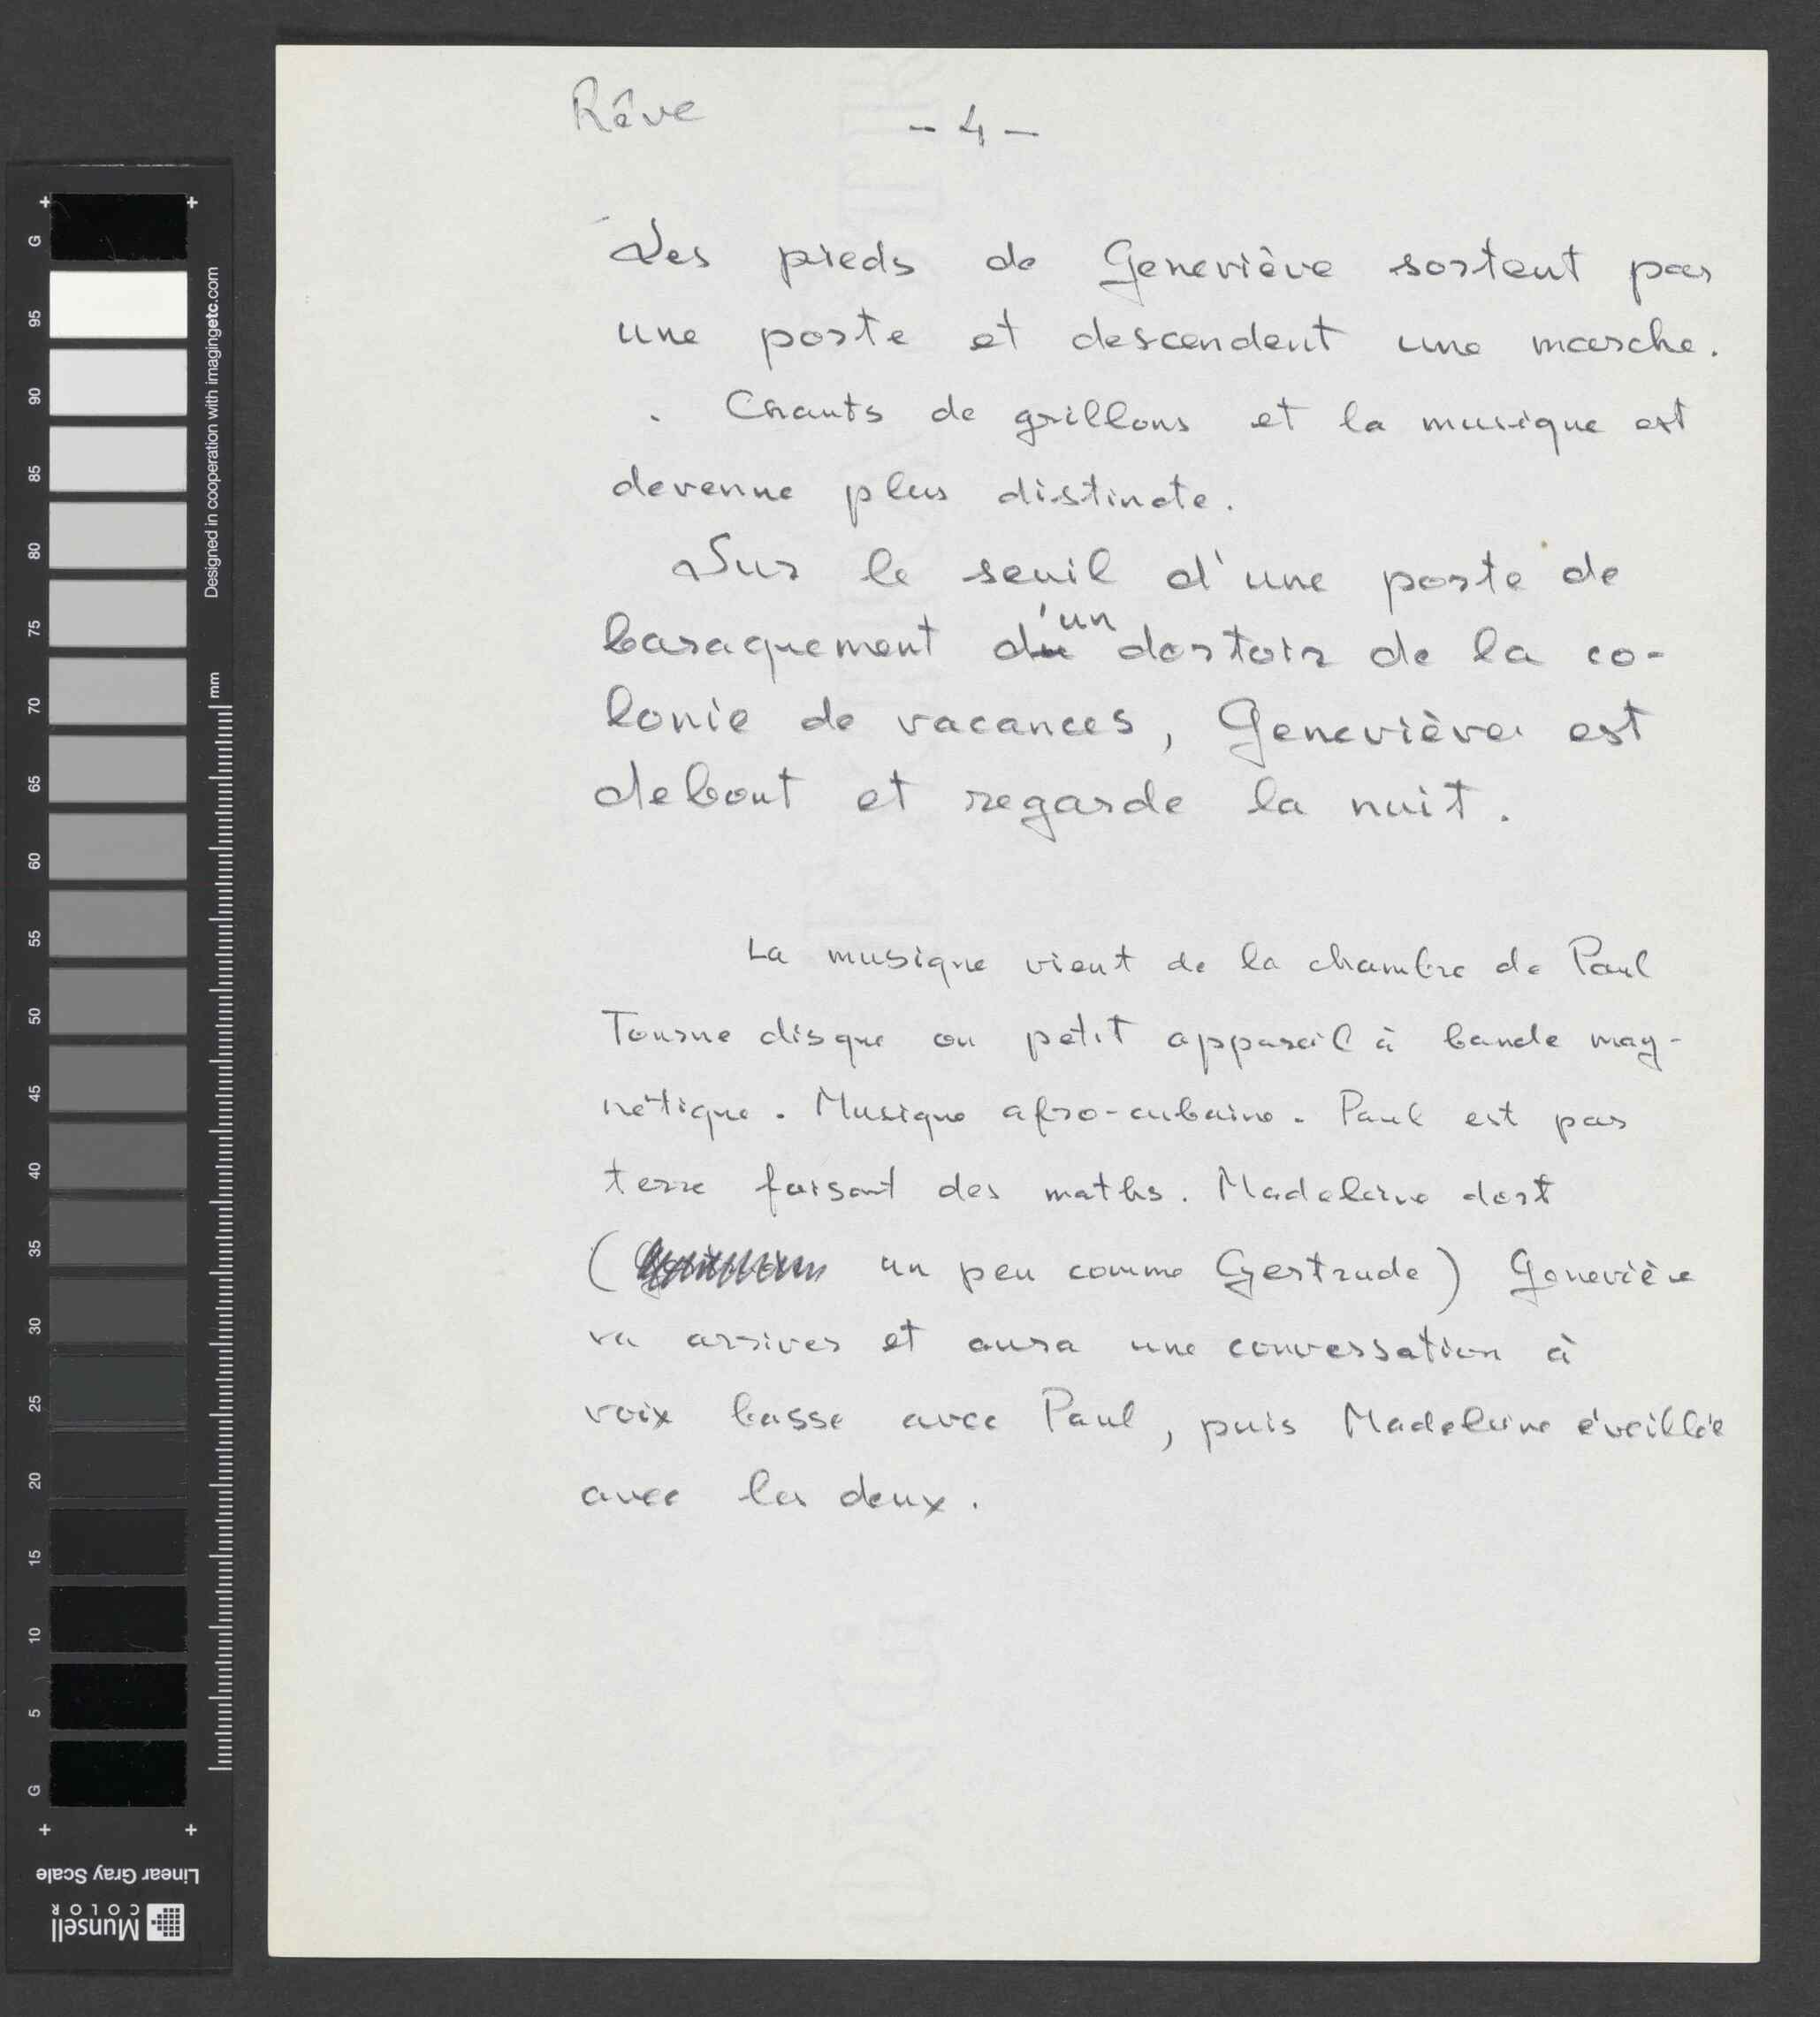 Rêve
- 4 -
Les pieds de Geneviève sortent par
une porte et descendent une marche.
. Chants de grillons et la musique est
devenue plus distincte.
Sur le seuil d'une porte de
baraquement d'un dortoir de la co-
lonie de vacances, Geneviève est
debout et regarde la nuit.
La musique vient de la chambre de Paul
Tourne disque ou petit appareil à bande mag-
nétique. Musique afro-cubaine. Paul est par
terre faisant des maths. Madeleine dort
( un peu comme Gertrude) Geneviève
va arriver et aura une conversation à
voix basse avec Paul, puis Madeleine éveillée
avec les deux.
G
95
90
85
80
75
70
65
60
55
50
45
40
35
30
25
20
15
10
5
G
Designed in cooperation with imagingetc.com
mm
Linear Gray Scale
Munsell
COLOR